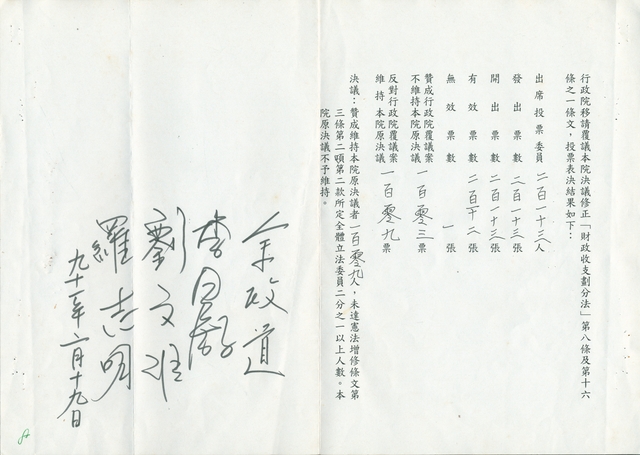 行政院移請覆議本院決議修正「財政收支劃分法」第八條及第十六
條之一條文，投票表決結果如下：
出席投票委員 二百一十三人
發出票數 二百一十三張
開出票數 二百一十三張
有效票數 二百一十二張
無效票數 一張
贊成行政院覆議案
不維持本院原決議 一百零三票
反對行政院覆議案
維持本院原決議 一百零九票
決議：贊成維持本院原決議者一百零九人，未達憲法增修條文第
三條第二項第二款所定全體立法委員二分之一以上人數。本
院原決議不予維持。
余政道
劉文雄
羅志明
九十一年二月十九日